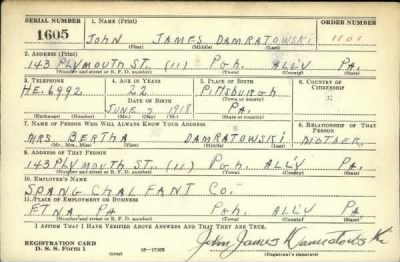 SERIAL NUMBER 1. NAME (Print) ORDER NUMBER
1605 JOHN JAMES DAMRATOWSKI 1101
(First) (Middle) (Last)
2. ADDRESS (Print)
143 PLYMOUTH ST. (11) PGH. ALL'Y PA.
(Number and street or R. F. D. number) (Town) (County) (State)
3. TELEPHONE 4. AGE IN YEARS 5. PLACE OF BIRTH 6. COUNTRY OF CITIZENSHIP
HE. 6992 22 PITTSBURGH
DATE OF BIRTH (Town or county)
JUNE 7 1918 PA.
(Exchange) (Number) (Mo.) (Day) (Yr.) (State or country)
7. NAME OF PERSON WHO WILL ALWAYS KNOW YOUR ADDRESS 8. RELATIONSHIP OF THAT PERSON
MRS. BERTHA DAMRATOWSKI MOTHER
(Mr., Mrs., Miss) (First) (Middle) (Last)
9. ADDRESS OF THAT PERSON
143 PLYMOUTH ST. (11) PGH. ALL'Y PA.
(Number and street or R. F. D. number) (Town) (County) (State)
10. EMPLOYER'S NAME
SPANG CHALFANT CO.
11. PLACE OF EMPLOYMENT OR BUSINESS
ETNA PA PGH. ALL'Y PA
(Number and street or R. F. D. number) (Town) (County) (State)
I AFFIRM THAT I HAVE VERIFIED ABOVE ANSWERS AND THAT THEY ARE TRUE.
REGISTRATION CARD
D. S. S. Form 1 John James Damratowski